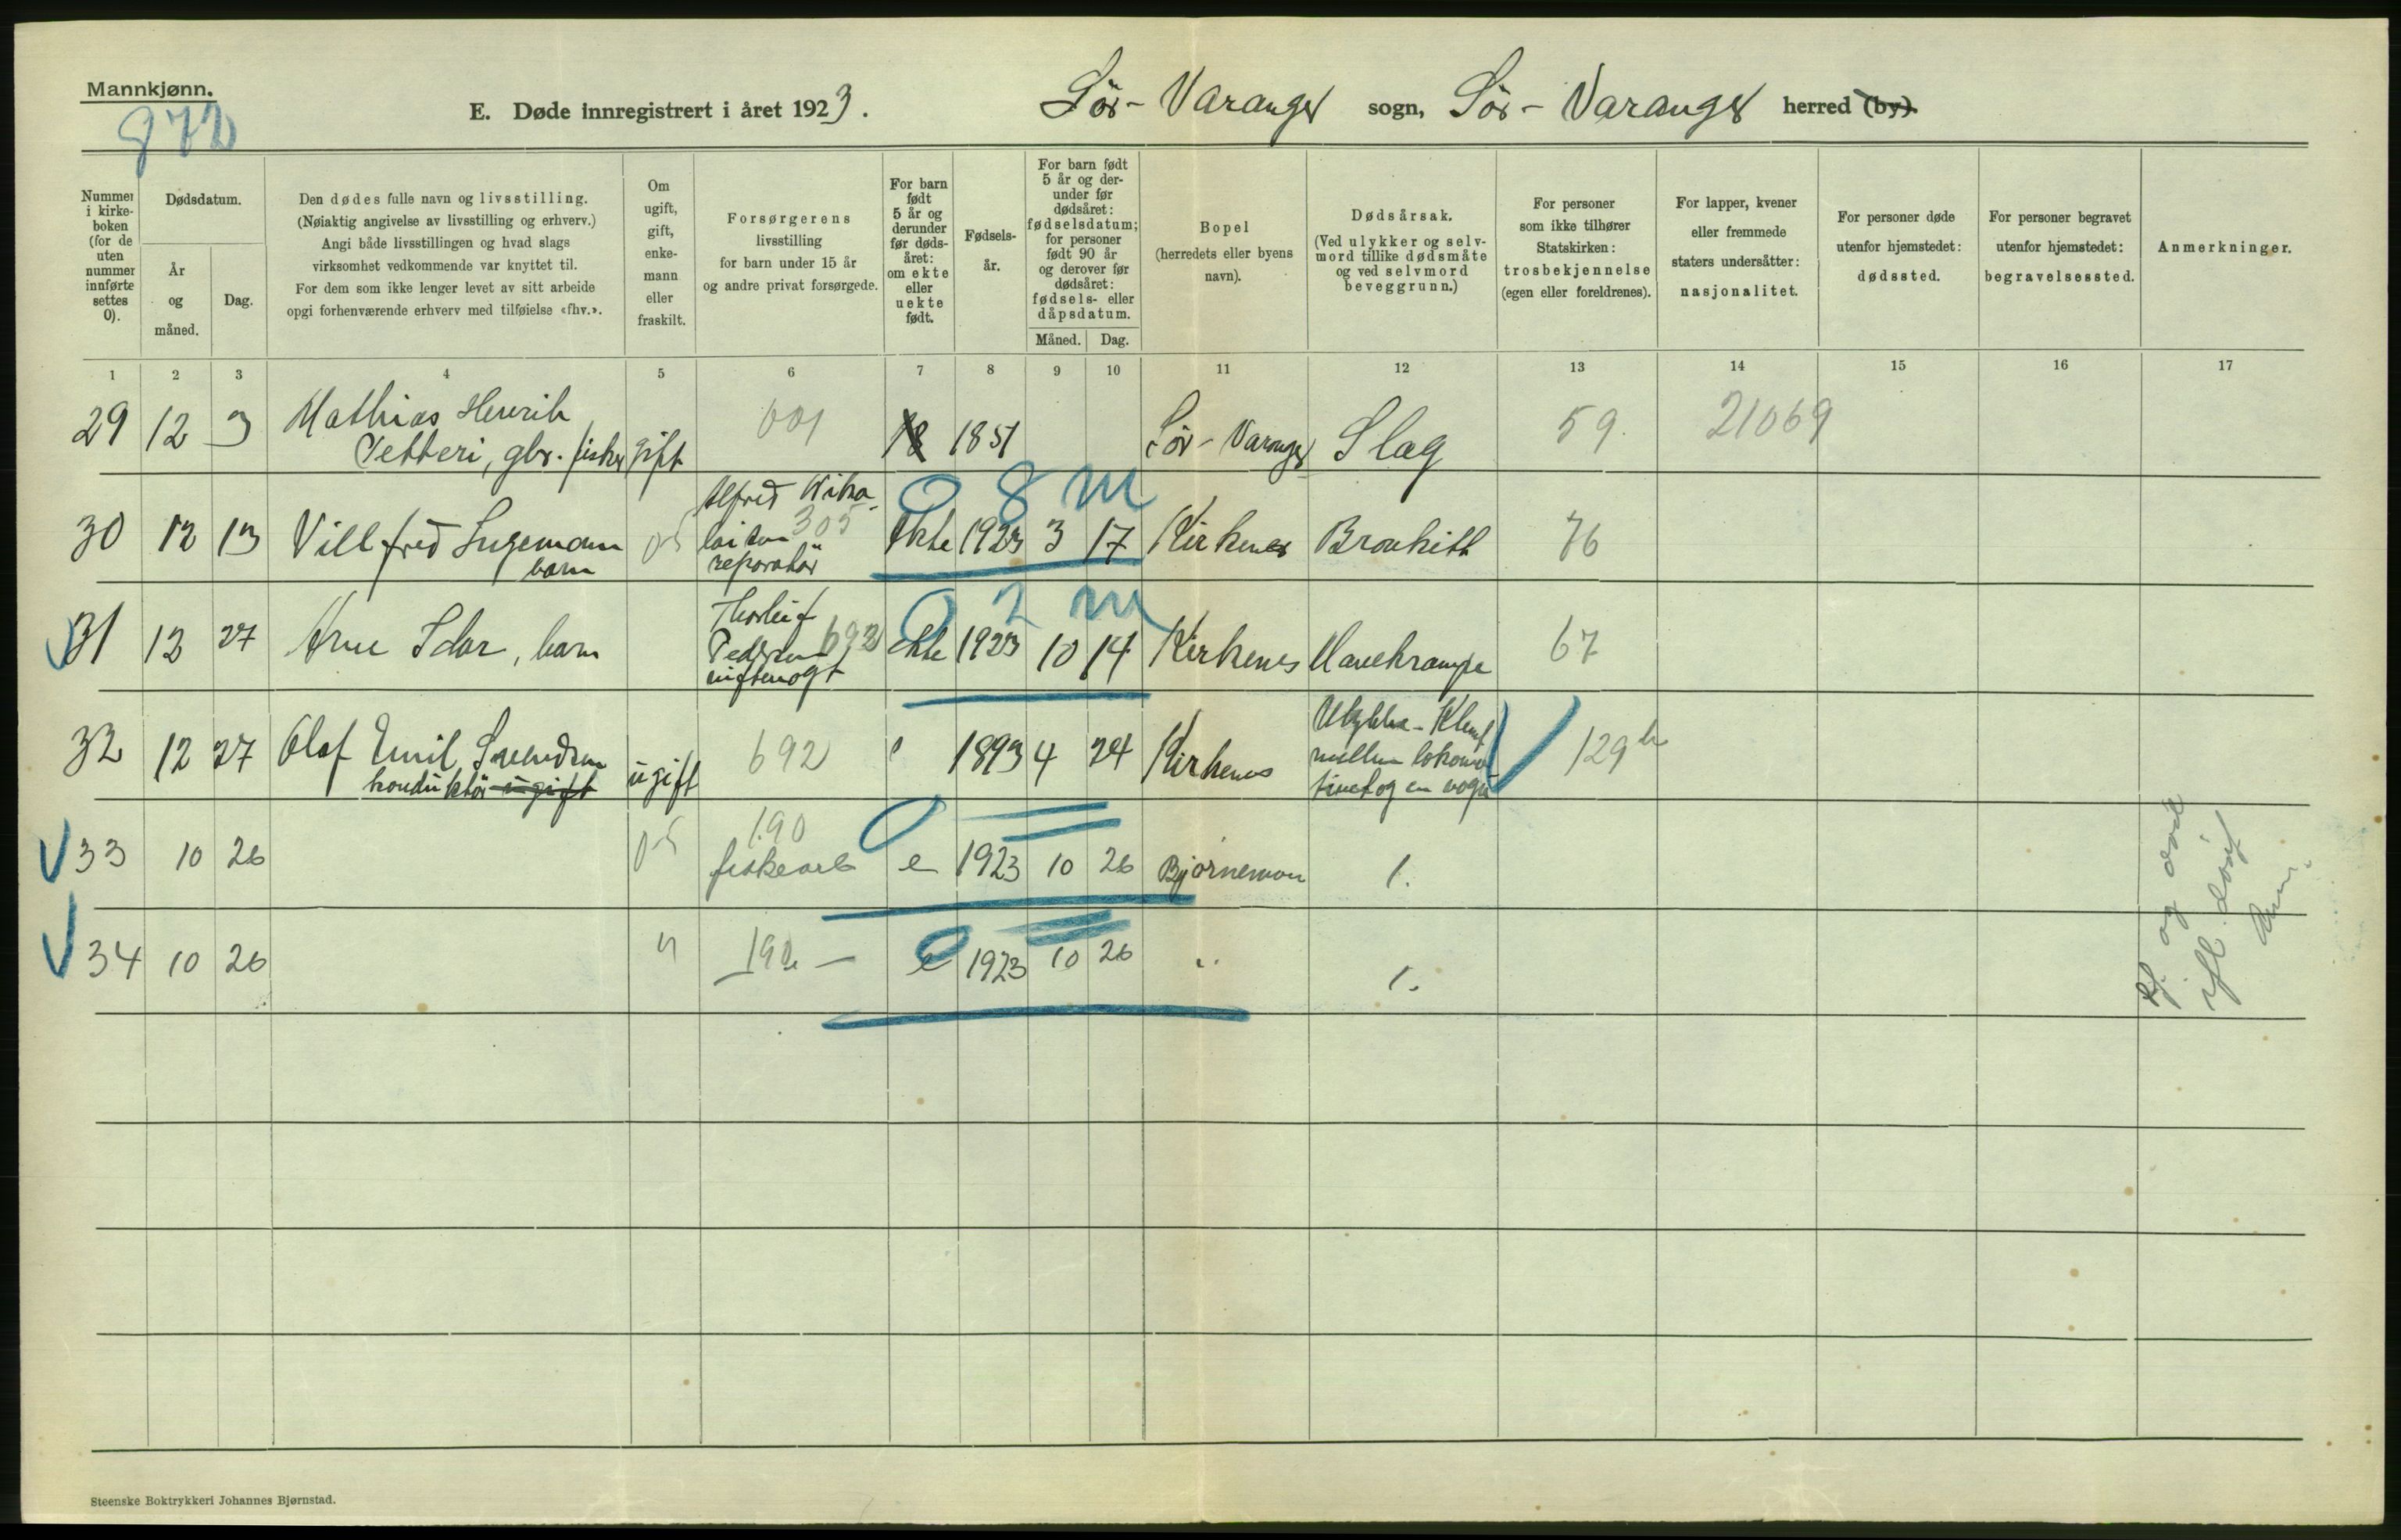 Mannkjønn.
872
E. Døde innregistrert i året 1923.
Sör-Varanger sogn, Sör-Varanger herred (by).
Nummer i kirke-boken (for de uten nummer innførte settes 0).
Dødsdatum.
År og måned.
Dag.
Den dødes fulle navn og livsstilling.
(Nøiaktig angivelse av livsstilling og erhverv.)
Angi både livsstillingen og hvad slags
virksomhet vedkommende var knyttet til.
For dem som ikke lenger levet av sitt arbeide
opgi forhenværende erhverv med tilføielse «fhv.».
Om ugift, gift, enke-mann eller fraskilt.
Forsørgerens
livsstilling
for barn under 15 år
og andre privat forsørgede.
For barn født 5 år og derunder før døds-året: om ekte eller uekte født.
Fødsels-år.
For barn født 5 år og der-under før dødsåret: fødselsdatum; for personer født 90 år og derover før dødsåret: fødsels- eller dåpsdatum.
Måned.
Dag.
Bopel
(herredets eller byens
navn).
Dødsårsak.
(Ved ulykker og selv-
mord tillike dødsmåte
og ved selvmord
beveggrunn.)
For personer
som ikke tilhører
Statskirken:
trosbekjennelse
(egen eller foreldrenes).
For lapper, kvener
eller fremmede
staters undersåtter:
nasjonalitet.
For personer døde
utenfor hjemstedet:
dødssted.
For personer begravet
utenfor hjemstedet:
begravelsessted.
Anmerkninger.
1 2 3 4 5 6 7 8 9 10 11 12 13 14 15 16 17
29 12 3 Mathias Henrik
Petteri, gbr. fisker gift 601 1851 Sör-Varanger Slag 59. 21069
8 m
30 12 13 Villfred Ingemann
barn 05 Alfred
305
reparatör Ekte 1923 3 17 Kirkenes Bronkitt 76
2 m
31 12 27 Arne Idar, barn Thorleif
Pedersen 692
ekte 1923 10 14 Kirkenes Mavekrampe 67
32 12 27 Olaf Emil Svendsen
konduktör ugift ugift 692 1893 4 24 Kirkenes Ulykke - Klemt
mellem lokomo
tivet og en vogn 129
33 10 26 05 190
fiskearb e 1923 10 26 Bjørnemon 1.
34 10 26 190 — e 1923 10 26 " 1.
og død
ifl.
Steenske Boktrykkeri Johannes Bjørnstad.